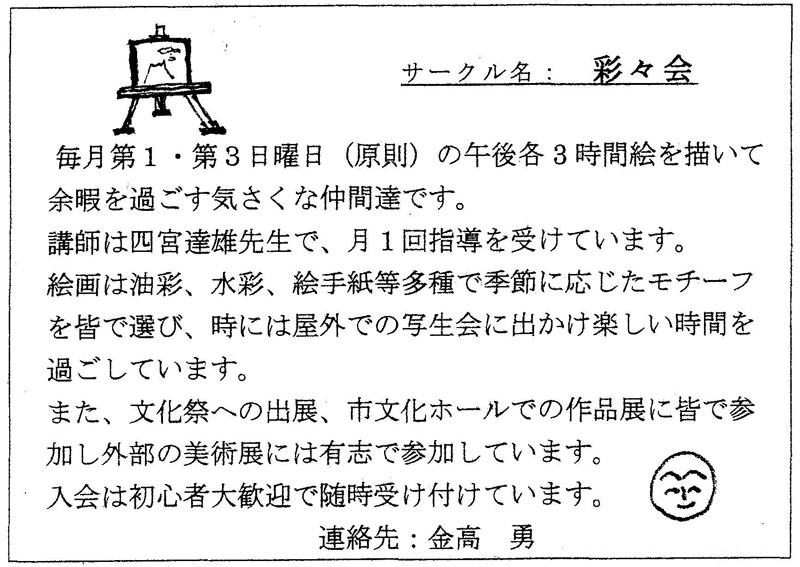 サークル名： 彩々会
毎月第１・第３日曜日（原則）の午後各３時間絵を描いて
余暇を過ごす気さくな仲間達です。
講師は四宮達雄先生で、月１回指導を受けています。
絵画は油彩、水彩、絵手紙等多種で季節に応じたモチーフ
を皆で選び、時には屋外での写生会に出かけ楽しい時間を
過ごしています。
また、文化祭への出展、市文化ホールでの作品展に皆で参
加し外部の美術展には有志で参加しています。
入会は初心者大歓迎で随時受け付けています。
連絡先：金高　勇